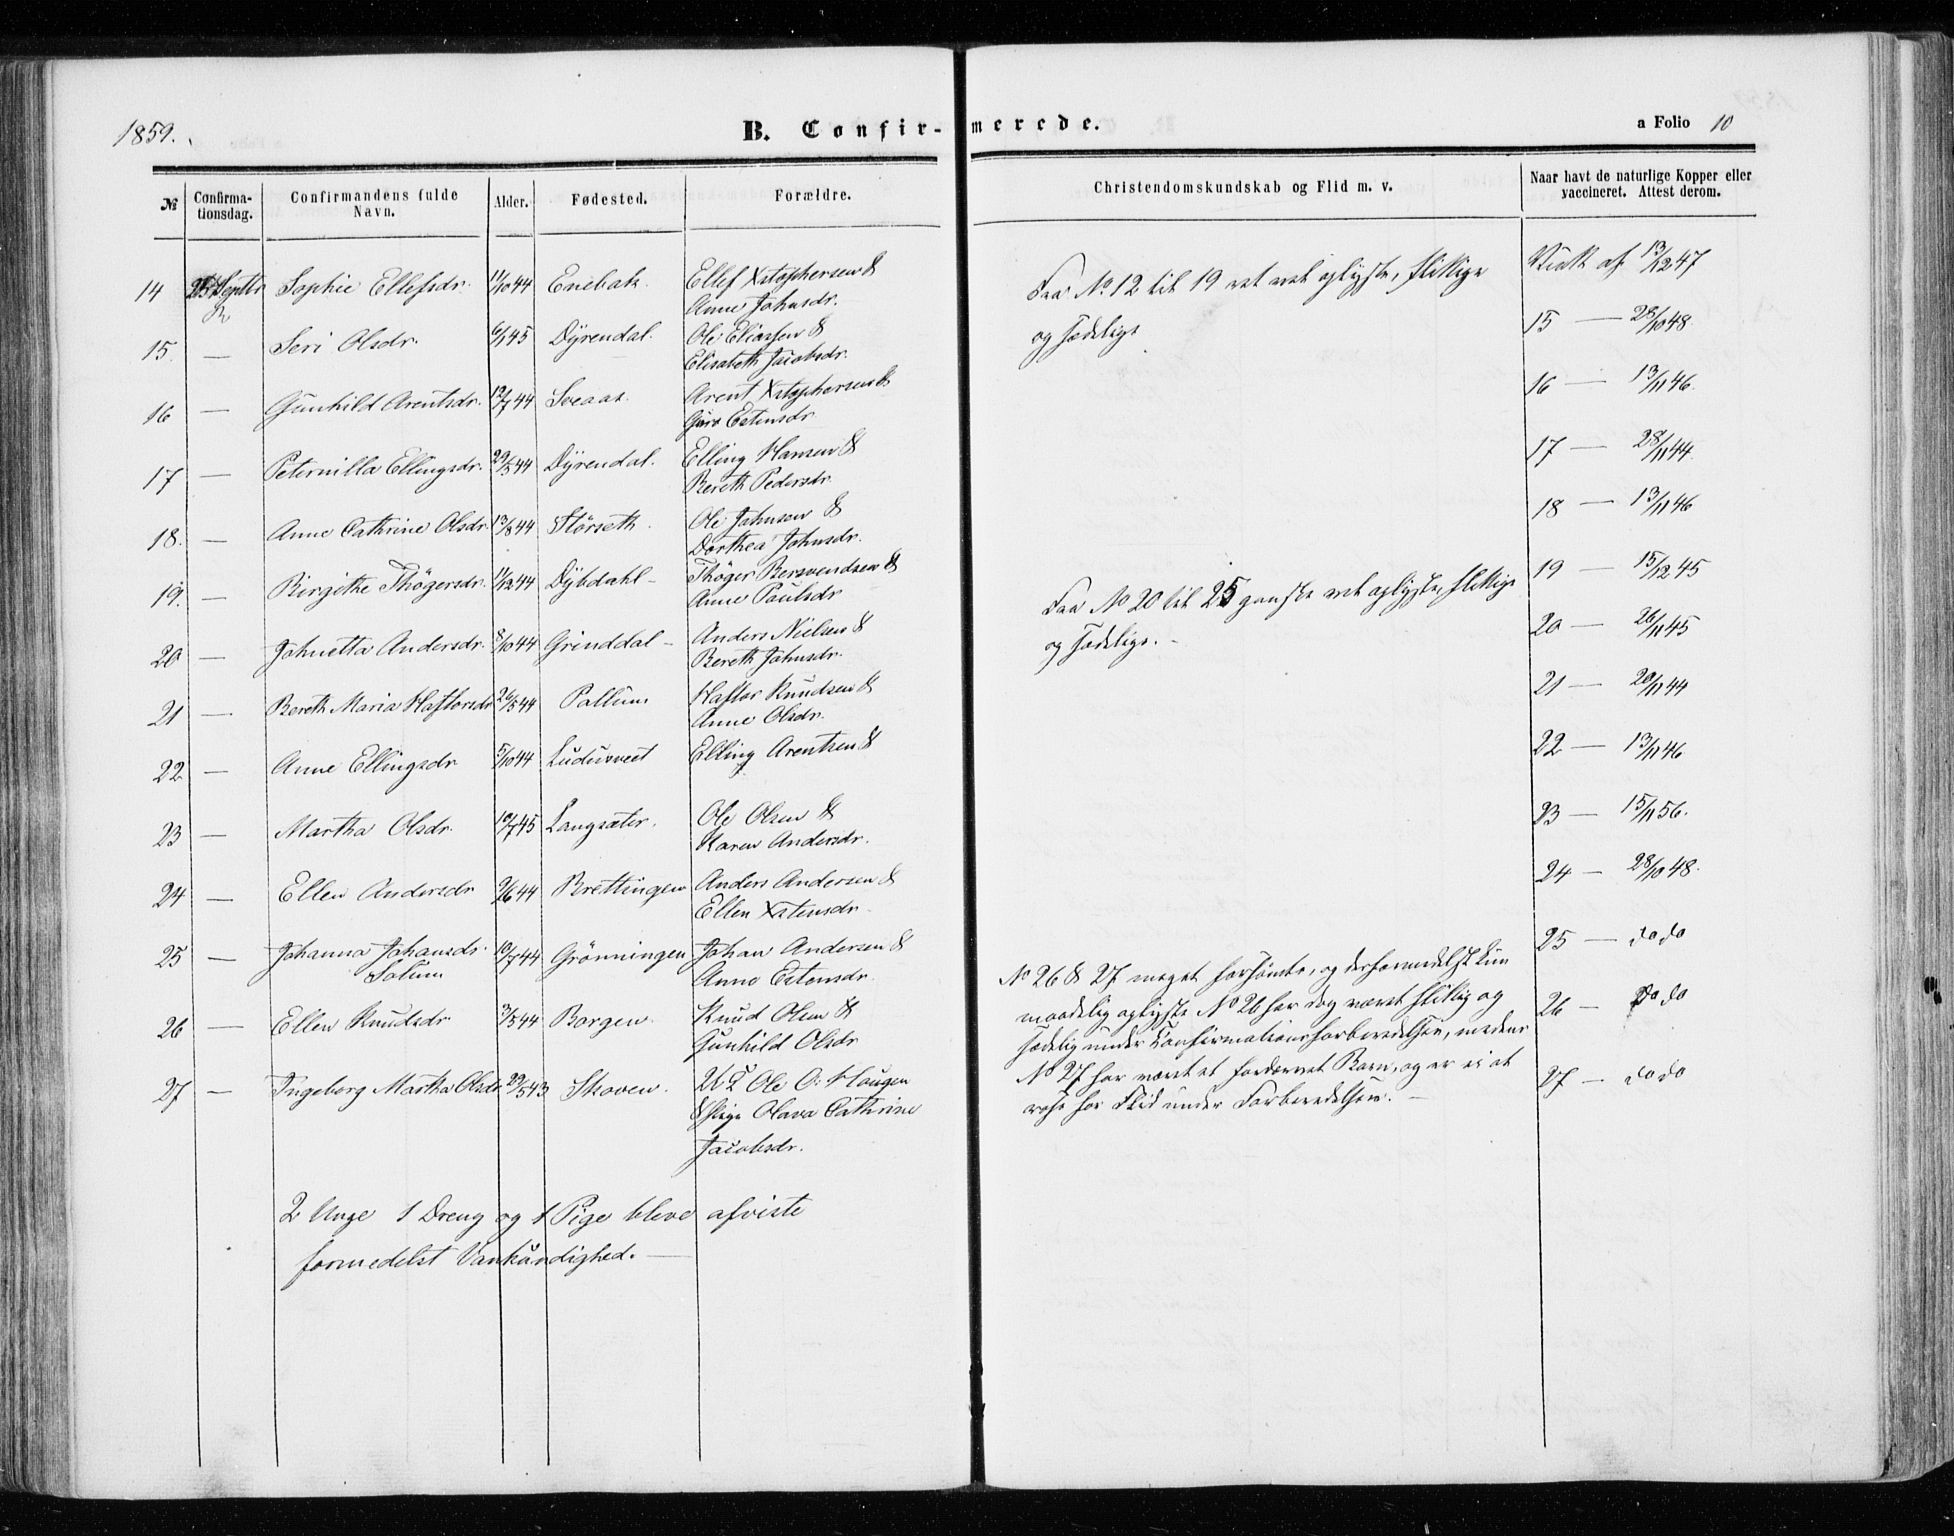 1859.
B. Confirmerede.
a Folio 10
№ Confirmationsdag. Confirmandens fulde Navn. Alder. Fødested. Forældre. Christendomskundskab og Flid m. v. Naar havt de naturlige Kopper eller vaccineret. Attest derom.
14 25 Septbr Sophie Ellefsdr. 11/10 44 Enebak Ellef Xstophersen &
Anne Johnsdr.
15 — Seri Olsdr. 6/1 45 Dÿrendal. Ole Eliassen &
Elisabeth Jacobsdr.
16 — Gunhild Arentsdr. 12/7 44 Sveaas Arent Xstophersen &
Guro Estensdr
17 — Peternilla Ellingsdr. 29/5 44 Dÿrendal. Elling Hansen &
Bereth Pedersdr.
18. — Anne Cathrine Olsdr. 13/8 44 Störseth. Ole Johnsen &
Dorthea Johnsdr.
19. — Birgithe Thögersdr. 11/12 44 Dÿbdahl — Thöger Bersvendsen &
Anne Paulsdr
20 — Johnetta Andersdr. 8/10 44 Grinddal — Anders Nielsen &
Bereth Johnsdr.
21 — Bereth Maria Haftorsdr 26/5 44 Pallum Haftor Knudsen &
Anne Olsdr.
22 — Anne Ellingsdr 5/10 44 Ludusveet Elling Arentsen &
23 — Martha Olsdr. 10/7 45 Langsæter. Ole Olsen &
Karen Andersdr.
24 — Ellen Andersdr 9/6 44 Brettingen Anders Andersen &
Ellen Xstensdr.
25 — Johanna Johansdr. 10/7 44 Grönningen Johan Andersen &
Solum Anne Estensdr.
26 — Ellen Knudsdr. 3/5 44 Borgen. Knud Olsen &
Gunhild Olsdr
27 — Ingeborg Martha Olsdr 29/5 43 Skoven. Ole O. Haugen
& Pige Olava Cathrine
Jacobsdr.
2 Unge 1 Dreng og 1 Pige bleve afviste
formedelst Vankundighed. —
Fra No 12 til 19 ret vel oplyste, flittige
og sædelige
Fra No 20 til 25 ganske vel oplyste, flittige
og sædelige. —
No 26 & 27 meget forsömte, og derformedelst kun
maadelig oplyste No 26 har dog været flittig og
sædelig under Confirmationsforberedelsen, medens
No 27 har været et fordærvet Barn, og er ei at
rose for Flid under Forberedelsen. —
af 13/12 47
15 — 28/10 48.
16 — 13/11 46.
17 — 28/11 44.
18 — 13/11 46
19 — 15/12 45
20 — 26/11 45
21 — 20/11 44
22 — 13/11 46
23 — 15/11 56.
24 — 28/10 48.
25 — do do
26 — do do
27 — do do